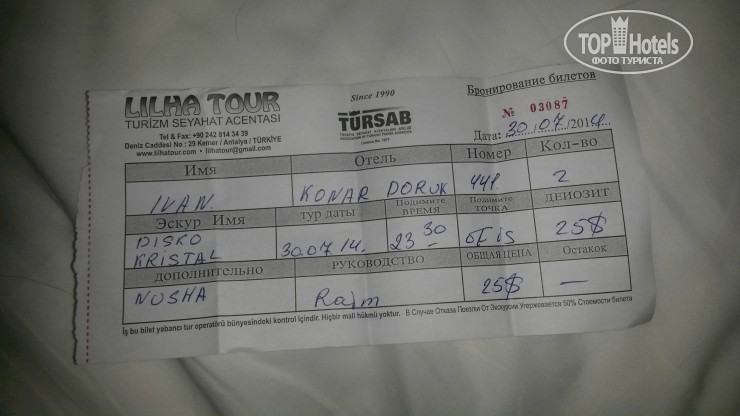 TOP Hotels
ФОТО ТУРИСТА
LILHA TOUR
TURİZM SEYAHAT ACENTASI
Tel & Fax: +90 242 814 34 39
Deniz Caddesi No : 29 Kemer / Antalya / TÜRKİYE
www.lilhatour.com • lilhatour@gmail.com
Since 1990
TÜRSAB
Бронирование билетов
№ 03087
Дата: 30/07/2014
Имя Отель Номер Кол-во
IVAN. KONAR DORUK 441. 2
Эскур Имя тур даты Подимите ВРЕМЯ Подимите ТОЧКА ДЕИОЗИТ
DISKO KRISTAL 30.07.14. 23 30 OFis 25$
ДОПОЛНИТЕЛЬНО РУКОВОДСТВО ОБЩАЯ ЦЕНА Остакок
NUSHA 25$ —
İş bu bilet yabancı tur operatörü bünyesindeki kontrol içindir. Hiçbir mali hükmü yoktur. В Случае Отказа Поезли От Экскурсии Угерживается 50% Стоемости билета